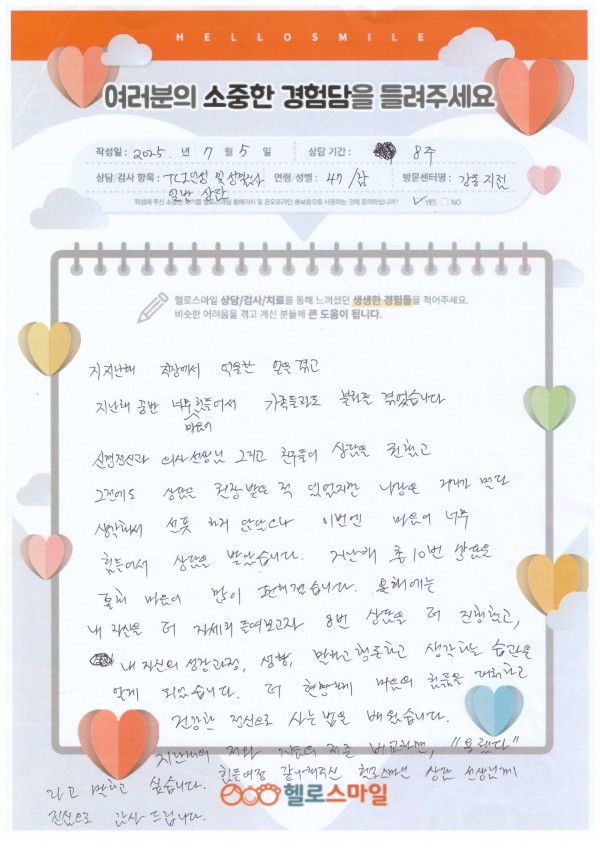 HELLOSMILE
여러분의 소중한 경험담을 들려주세요
작성일 : 2025. 년 7 월 5 일 상담 기간 : 8주
상담/검사 항목 : TCI 기질 및 성격검사 연령/성별 : 47 / 남 방문센터명 : 강릉 지점
일반 상담
작성해 주신 소중한 후기를 헬로스마일 홈페이지 및 온오프라인 홍보용으로 사용하는 것에 동의하십니까? ✓ YES □ NO
헬로스마일 상담/검사/치료를 통해 느끼셨던 생생한 경험들을 적어주세요.
비슷한 어려움을 겪고 계신 분들께 큰 도움이 됩니다.
지지난해 직장에서 억울한 일을 겪고
지난해 중반 너무 힘들어서 가족들과도 불화를 겪었습니다
마음이
신경정신과 의사선생님 그리고 친구들이 상담을 권했고
그전에도 상담을 권장 받은 적 있었지만 나랑은 거리가 멀다
생각해서 선뜻 하지 않았으나 이번엔 마음이 너무
힘들어서 상담을 받았습니다. 지난해 총 10번 상담을
통해 마음이 많이 편해졌습니다. 올해에는
내 자신을 더 자세히 들여보고자 8번 상담을 더 진행했고,
내 자신의 성장과정, 성향, 말하고 행동하고 생각하는 습관을
알게 되었습니다. 더 현명하게 마음의 힘듦을 대처하고
건강한 정신으로 사는 법을 배웠습니다.
지난해의 저와 지금의 저를 비교하면, "용됐다"
라고 말하고 싶습니다. 힘든여정 같이해주신 헬로스마일 상담 선생님께
진심으로 감사 드립니다.
헬로스마일